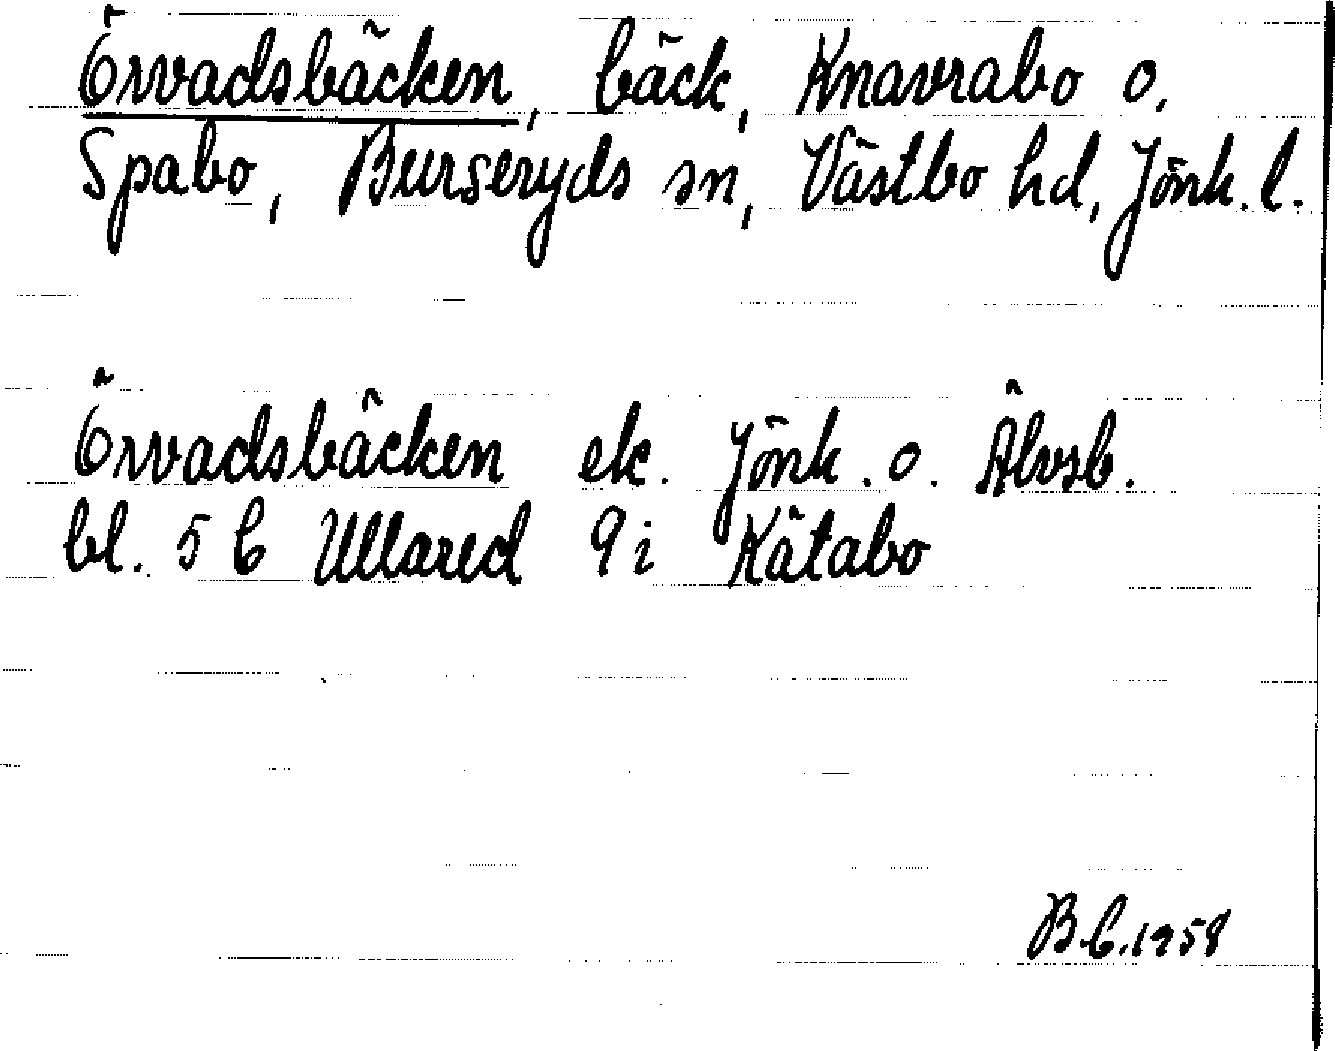 Örvadsbäcken, bäck, Knavrabo o.
Spabo, Burseryds sn, Västbo hd, Jönk. l.
Örvadsbäcken ek. Jönk. o. Älvsb.
bl. 5 C Ullared 9 i Kätabo
B.C. 1958